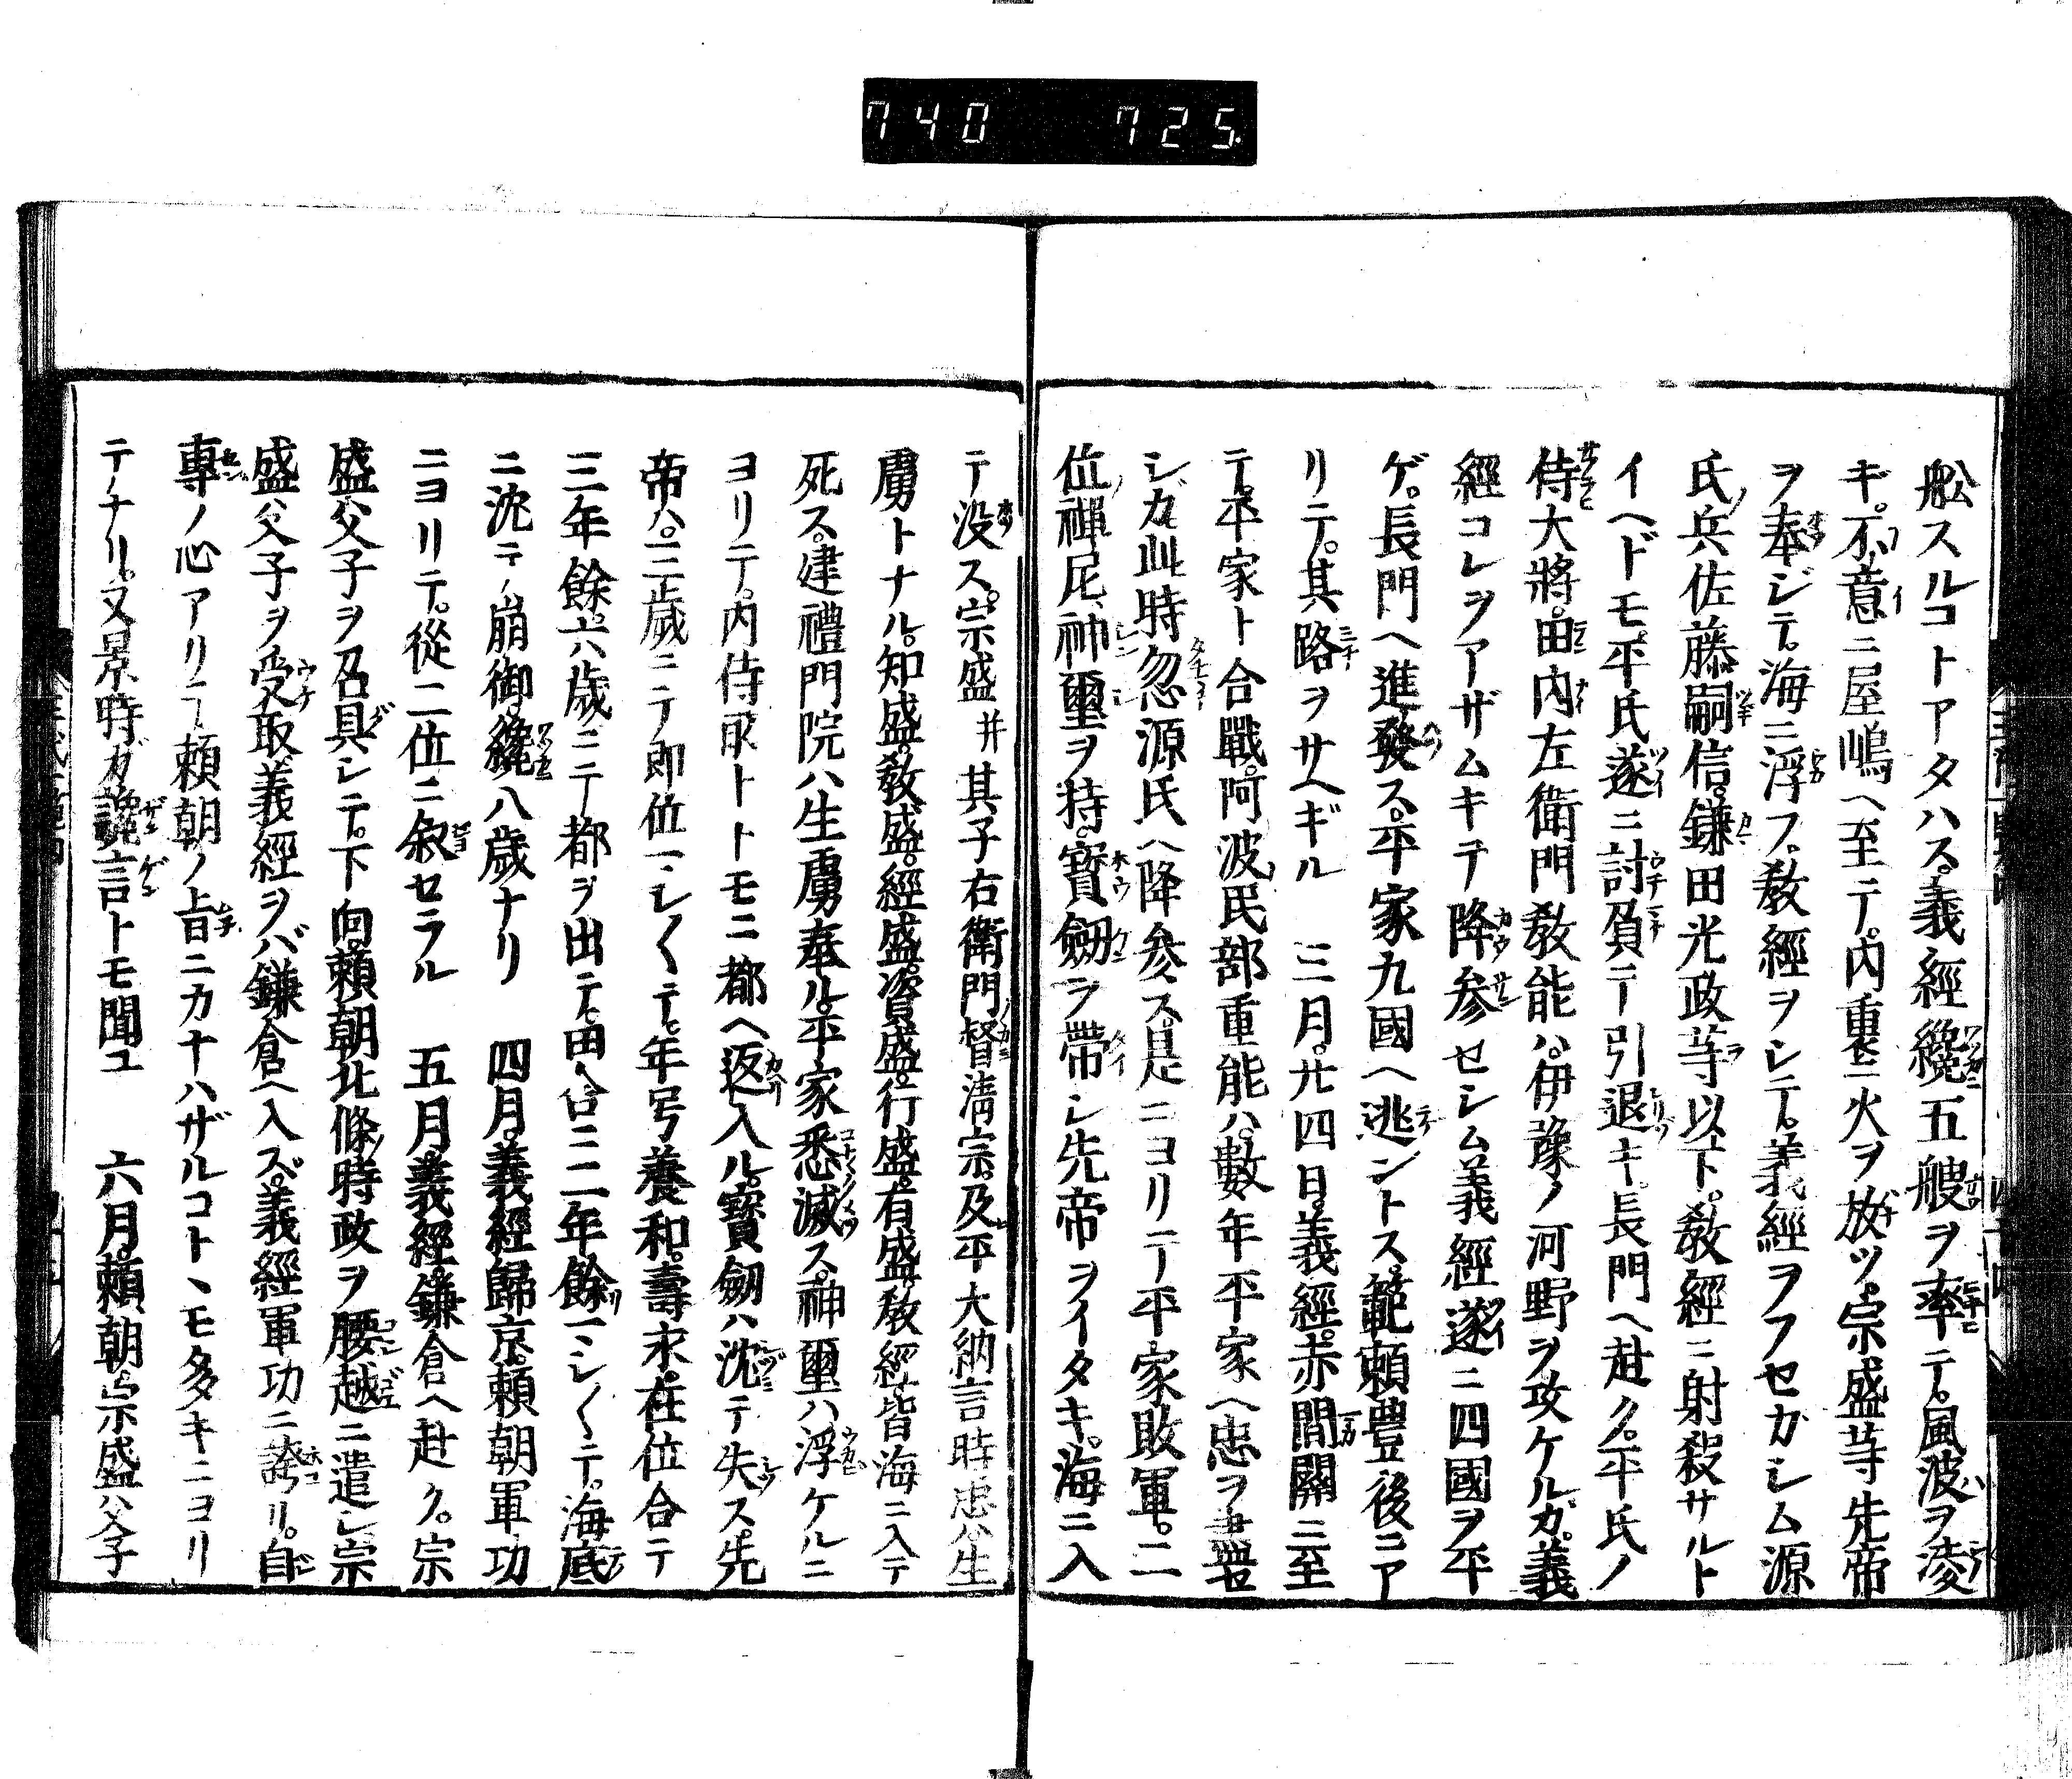 740 725
舩スルコトアタハス義經纔五艘ヲ率テ風波ヲ凌
ギ不意ニ屋嶋ヘ至テ内裏ニ火ヲ放ツ宗盛等先帝
ヲ奉ジテ海ニ浮フ教經ヲシテ義經ヲフセガシム源
氏ノ兵佐藤嗣信鎌田光政等以下教經ニ射殺サルト
イヘドモ平氏遂ニ討負テ引退キ長門ヘ赴ク平氏ノ
侍大將田内左衛門教能ハ伊豫ノ河野ヲ攻ケルガ義
經コレヲアザムキテ降参セシム義經遂ニ四國ヲ平
ゲ長門ヘ進發ス平家九國ヘ逃ントス範頼豊後ニア
リテ其路ヲサヘギル 三月廿四日義經赤間關ニ至
テ平家ト合戰阿波民部重能ハ數年平家ヘ忠ヲ盡セ
シガ此時忽源氏ヘ降参ス是ニヨリテ平家敗軍二
位禪尼神璽ヲ持寳劔ヲ帶シ先帝ヲイタキ海ニ入
テ没ス宗盛并其子右衛門督淸宗及平大納言時忠ハ生
虜トナル知盛教盛經盛資盛行盛有盛教經皆海ニ入テ
死ス建禮門院ハ生虜奉ル平家悉滅ス神璽ハ浮ケルニ
ヨリテ内侍所トトモニ都ヘ返入ル寳劔ハ沈テ失ス先
帝ハ三歳ニテ即位マシ〱テ年号養和壽永在位合テ
三年餘六歳ニテ都ヲ出テ田舎ニ二年餘マシ〱テ海底
ニ沈テ崩御纔八歳ナリ 四月義經歸京頼朝軍功
ニヨリテ從二位ニ叙セラル 五月義經鎌倉ヘ赴ク宗
盛父子ヲ召具シテ下向頼朝北條時政ヲ腰越ニ遣シ宗
盛父子ヲ受取義經ヲバ鎌倉ヘ入ズ義經軍功ニ誇リ自
專ノ心アリテ頼朝ノ旨ニカナハザルコトヽモ多キニヨリ
テナリ又景時ガ讒言トモ聞ユ 六月頼朝宗盛父子